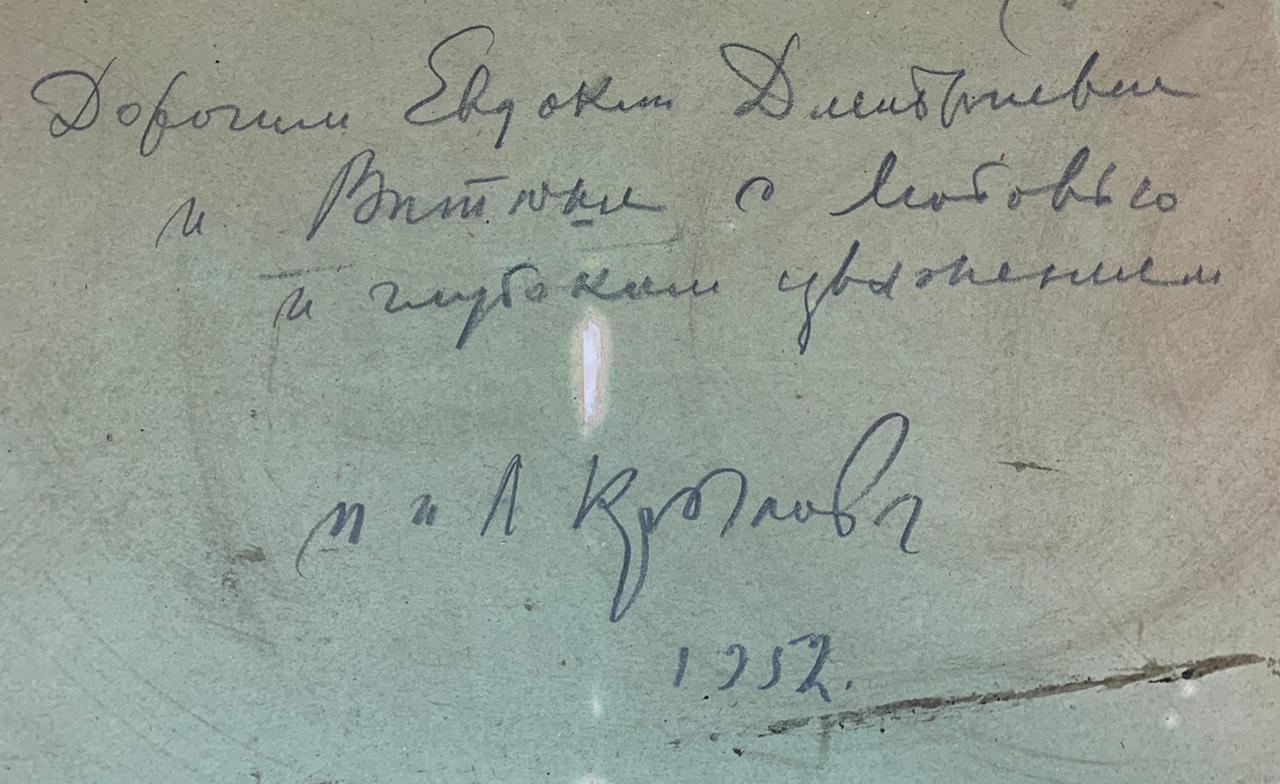 Дорогим Евдокии Дмитриевне
и Витюне с любовью
и глубоким уважением
П и Л Крыловы
1952.